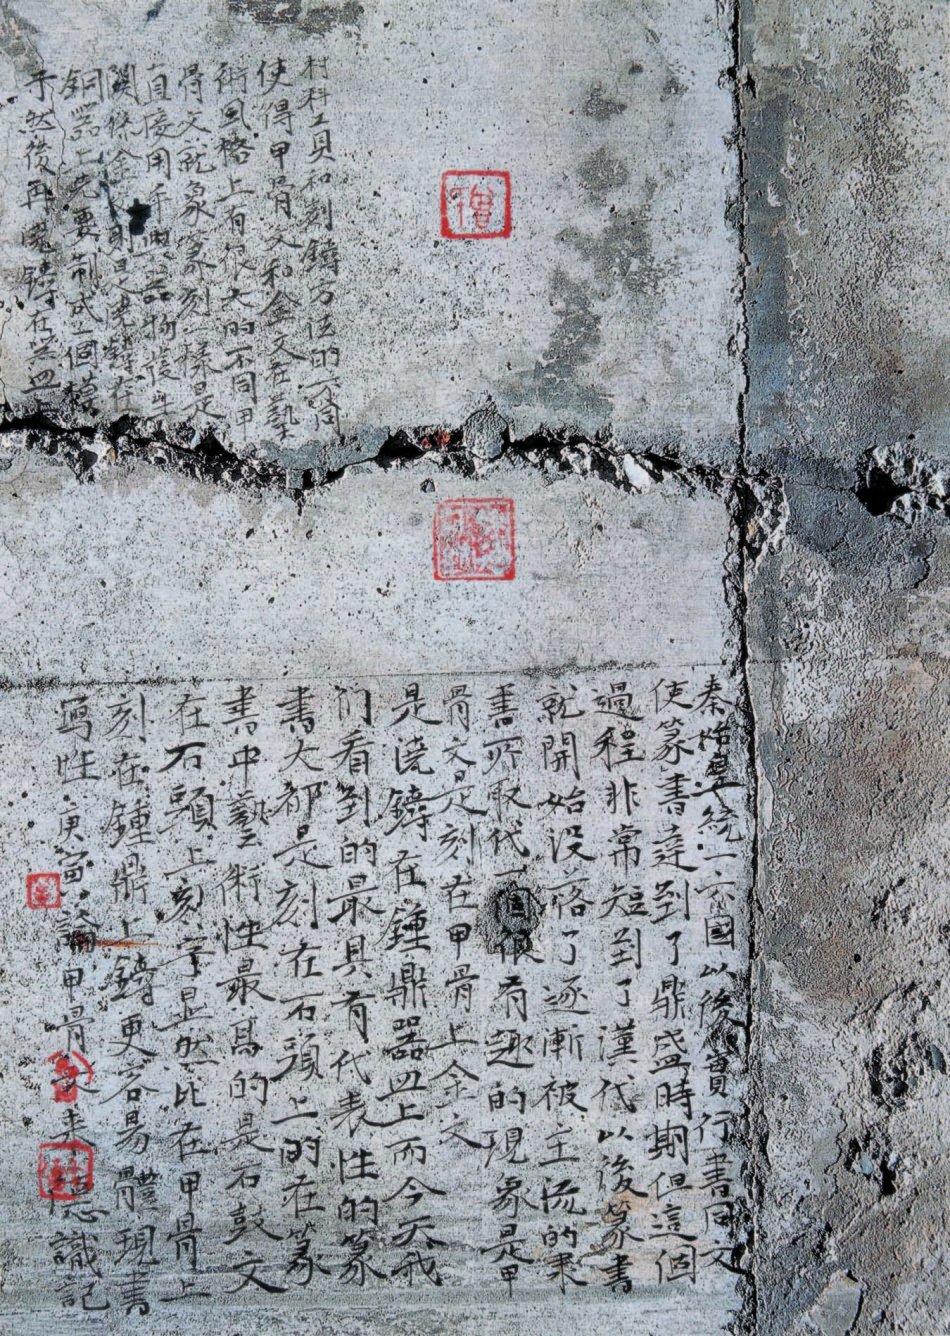 材料工具和刻鑄方位的不同
使得甲骨文和金文在藝
術風格上有很大的不同甲
骨文就象篆刻一樣是
直接用手與器物發生
關係金文則是澆鑄在
銅器上先要制成一個模
子然後再澆鑄在器皿
秦始皇統一六國以後實行書同文
使篆書達到了鼎盛時期但這個
過程非常短到了漢代以後篆書
就開始没落了逐漸被主流的隶
書所取代一個很有趣的現象是甲
骨文是刻在甲骨上金文
是澆鑄在鍾鼎器皿上而今天我
们看到的最具有代表性的篆
書大都是刻在石頭上的在篆
書中藝術性最高的是石鼓文
在石頭上刻字显然比在甲骨上
刻在鍾鼎上鑄更容易體現書
寫性庚寅論甲骨文識記